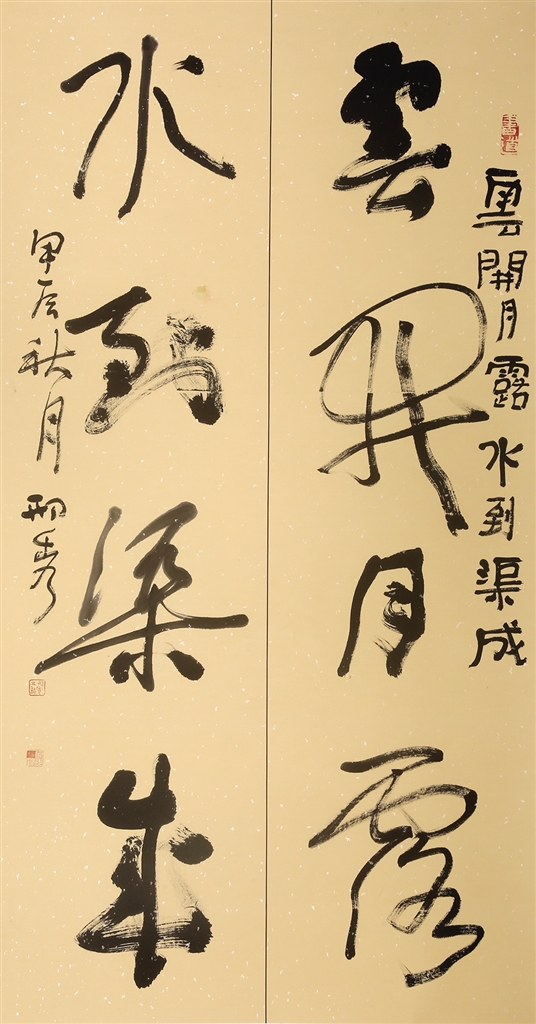 雲開月露水到渠成
雲開月露
水到渠成
甲辰秋月